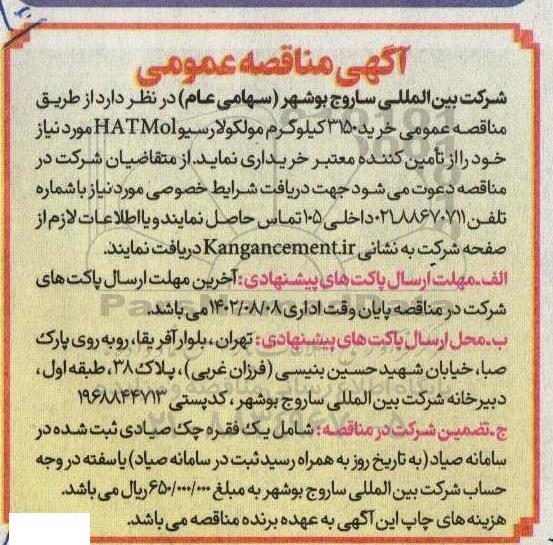 آگهی مناقصه عمومی
شرکت بین المللی ساروج بوشهر (سهامی عام) در نظر دارد از طریق
مناقصه عمومی خرید ۳۱۵۰ کیلوگرم مولکولارسیو HATMol مورد نیاز
خود را از تأمین کننده معتبر خریداری نماید. از متقاضیان شرکت در
مناقصه دعوت می شود جهت دریافت شرایط خصوصی مورد نیاز با شماره
تلفن ۰۲۱.۸۸۶۷۰۷۱۱ داخلی ۱۰۵ تماس حاصل نمایند و یا اطلاعات لازم از
صفحه شرکت به نشانی Kangancement.ir دریافت نمایند.
الف-مهلت ارسال پاکت های پیشنهادی: آخرین مهلت ارسال پاکت های
شرکت در مناقصه پایان وقت اداری ۱۴۰۲/۰۸/۰۸ می باشد.
ب-محل ارسال پاکت های پیشنهادی: تهران، بلوار آفریقا، روبه روی پارک
صبا، خیابان شهید حسین بنیسی (فرزان غربی)، پلاک ۳۸، طبقه اول،
دبیرخانه شرکت بین المللی ساروج بوشهر، کدپستی ۱۹۶۸۸۴۴۷۱۳
ج-تضمین شرکت در مناقصه: شامل یک فقره چک صیادی ثبت شده در
سامانه صیاد (به تاریخ روز به همراه رسید ثبت در سامانه صیاد) یا سفته در وجه
حساب شرکت بین المللی ساروج بوشهر به مبلغ ۶۵۰/۰۰۰/۰۰۰ ریال می باشد.
هزینه های چاپ این آگهی به عهده برنده مناقصه می باشد.
ParsNamadData